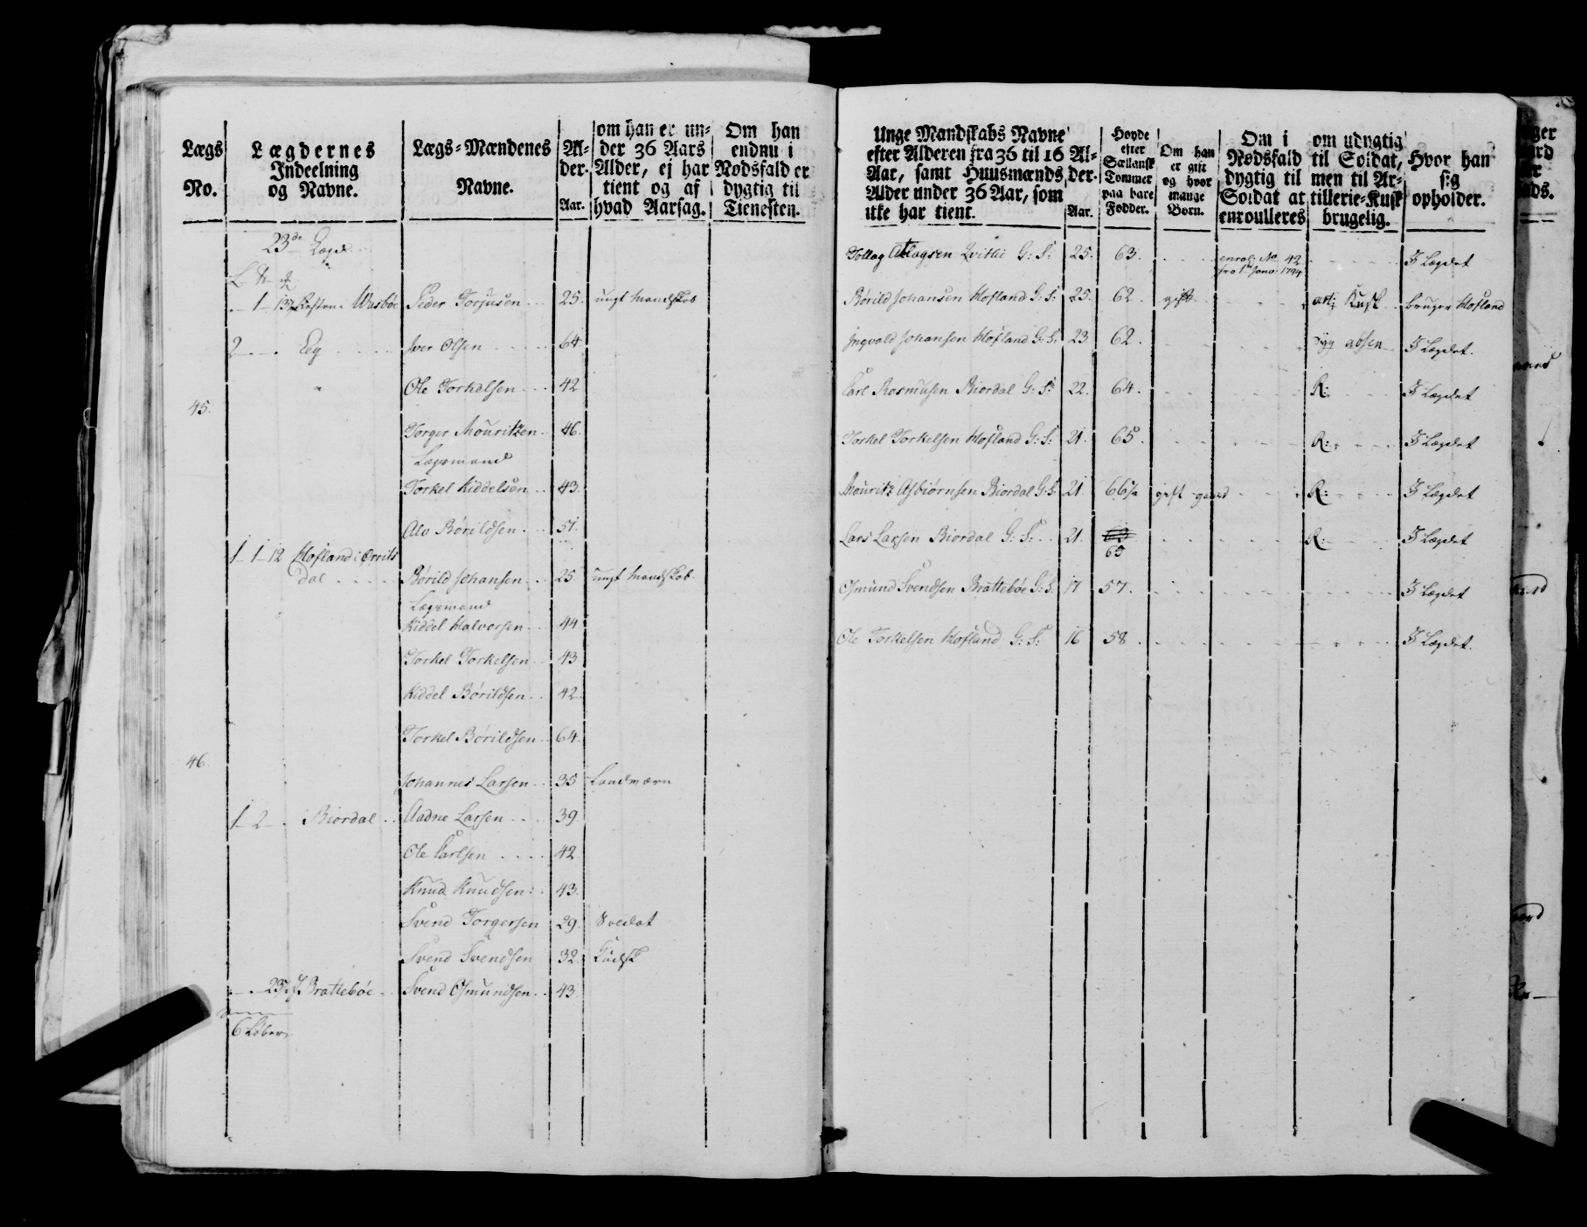 Lægs No.
Lægdernes Indeelning og Navne.
Lægs-Mændenes Navne.
Al-
der.
Aar.
om han er un-
der 36 Aars
Alder, ej har
tient og af
hvad Aarsag.
Om han
endnu i
Nødsfald er
dygtig til
Tienesten.
23de Lægd
1 Resten i Wasbøe Peder Torjusen 25. ungt Mandskab
2 Eeg Iver Olsen 64
Ole Torkelsen 42
45.
Torger Mouritzen 46.
Lægsmand
Torkel Kiddelsen 43
Alv Børildsen 51.
1 1 12 Hofland i Ørrits
dal Børild Johansen 25 ungt Mandskab
Lægsmand
Kiddel Halvorsen 44
Torkel Torkelsen 43
Kiddel Børildsen 42
Torkel Børildsen 64
46.
Johannes Larsen 35 Landværn
1 2 Biordal Aadne Larsen 39
Ole Carlsen 42
Knud Knudsen 43
Svend Torgersen 29 Soldat
Svend Svendsen 32 Kudsk
23 Brattebøe Svend Osmundsen 43
6 Løber
Unge Mandskabs Navne
efter Alderen fra 36 til 16
Aar, samt Huusmænds
Alder under 36 Aar, som
ikke har tient.
Al-
der.
Aar.
Høyde
efter
Sællansk
Tommer
paa bare
Fødder.
Om han
er gift
og hvor
mange
Børn.
Om i
Nødsfald
dygtig til
Soldat at
enroulleres
om udygtig
til Soldat,
men til Ar-
tillerie-Kusk
brugelig.
Hvor han
sig
opholder.
Tollag Aslagsen Qvitlie G: S: 25. 63. enrol: No 42 I Lægdet
fra 1te Janr 1794
Børild Johansen Hofland G: S: 25. 62 gift art: Kusk bruger Hofland
Ingvald Johansen Hofland G: S: 23 62 I Lægdet.
Carl Rasmusen Biordal G: S: 22. 64. R: I Lægdet
Torkel Torkelsen Hofland G: S: 21. 65. R: I Lægdet
Mouritz Asbiørnsen Biordal G: S: 21 66½ gift R: I Lægdet
Lars Larsen Biordal G: S: 21 63 R: I Lægdet
Osmund Svendsen Brattebøe G: S: 17 57. I Lægdet
Ole Torkelsen Hofland G: S: 16 58. I Lægdet.